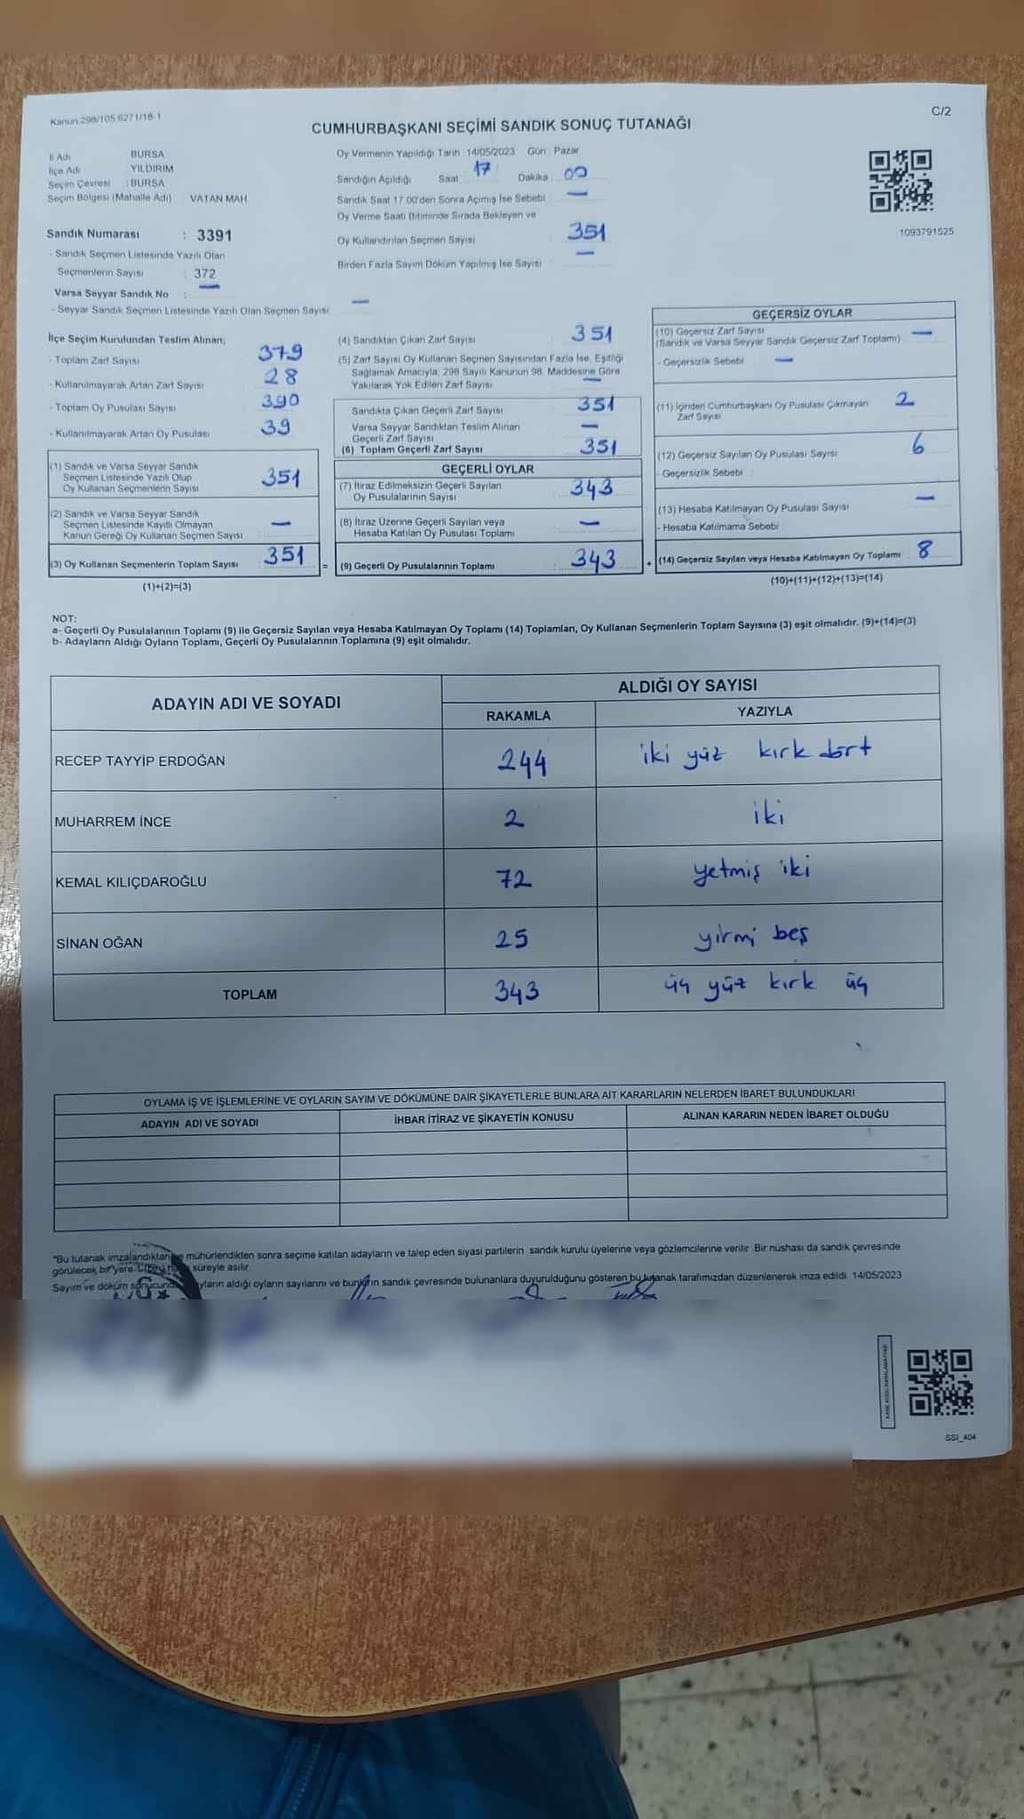 Kanun:298/105,6271/18-1
C/2
CUMHURBAŞKANI SEÇİMİ SANDIK SONUÇ TUTANAĞI
İl Adı BURSA
İlçe Adı YILDIRIM
Seçim Çevresi : BURSA
Seçim Bölgesi (Mahalle Adı) VATAN MAH.
Sandık Numarası : 3391
- Sandık Seçmen Listesinde Yazılı Olan
Seçmenlerin Sayısı : 372
Varsa Seyyar Sandık No : —
- Seyyar Sandık Seçmen Listesinde Yazılı Olan Seçmen Sayısı —
Oy Vermenin Yapıldığı Tarih 14/05/2023 Gün : Pazar
Sandığın Açıldığı Saat 17 Dakika 00
Sandık Saat 17.00'den Sonra Açımış İse Sebebi —
Oy Verme Saati Bitiminde Sırada Bekleyen ve
Oy Kullandırılan Seçmen Sayısı 351
Birden Fazla Sayım Döküm Yapılmış İse Sayısı —
1093791525
İlçe Seçim Kurulundan Teslim Alınan;
- Toplam Zarf Sayısı 379
- Kullanılmayarak Artan Zarf Sayısı 28
- Toplam Oy Pusulası Sayısı 390
- Kullanılmayarak Artan Oy Pusulası 39
(1) Sandık ve Varsa Seyyar Sandık
Seçmen Listesinde Yazılı Olup
Oy Kullanan Seçmenlerin Sayısı 351
(2) Sandık ve Varsa Seyyar Sandık
Seçmen Listesinde Kayıtlı Olmayan
Kanun Gereği Oy Kullanan Seçmen Sayısı —
(3) Oy Kullanan Seçmenlerin Toplam Sayısı 351
(1)+(2)=(3)
(4) Sandıktan Çıkan Zarf Sayısı 351
(5) Zarf Sayısı Oy Kullanan Seçmen Sayısından Fazla İse, Eşitliği
Sağlamak Amacıyla, 298 Sayılı Kanunun 98. Maddesine Göre
Yakılarak Yok Edilen Zarf Sayısı —
Sandıkta Çıkan Geçerli Zarf Sayısı 351
Varsa Seyyar Sandıktan Teslim Alınan
Geçerli Zarf Sayısı —
(6) Toplam Geçerli Zarf Sayısı 351
GEÇERLİ OYLAR
(7) İtiraz Edilmeksizin Geçerli Sayılan
Oy Pusulalarının Sayısı 343
(8) İtiraz Üzerine Geçerli Sayılan veya
Hesaba Katılan Oy Pusulası Toplamı —
= (9) Geçerli Oy Pusulalarının Toplamı 343
GEÇERSİZ OYLAR
(10) Geçersiz Zarf Sayısı
(Sandık ve Varsa Seyyar Sandık Geçersiz Zarf Toplamı) —
- Geçersizlik Sebebi : —
(11) İçinden Cumhurbaşkanı Oy Pusulası Çıkmayan
Zarf Sayısı 2
(12) Geçersiz Sayılan Oy Pusulası Sayısı 6
- Geçersizlik Sebebi :
(13) Hesaba Katılmayan Oy Pusulası Sayısı —
- Hesaba Katılmama Sebebi :
+ (14) Geçersiz Sayılan veya Hesaba Katılmayan Oy Toplamı 8
(10)+(11)+(12)+(13)=(14)
NOT:
a- Geçerli Oy Pusulalarının Toplamı (9) ile Geçersiz Sayılan veya Hesaba Katılmayan Oy Toplamı (14) Toplamları, Oy Kullanan Seçmenlerin Toplam Sayısına (3) eşit olmalıdır. (9)+(14)=(3)
b- Adayların Aldığı Oyların Toplamı, Geçerli Oy Pusulalarının Toplamına (9) eşit olmalıdır.
ADAYIN ADI VE SOYADI ALDIĞI OY SAYISI
RAKAMLA YAZIYLA
RECEP TAYYİP ERDOĞAN 244 iki yüz kırk dört
MUHARREM İNCE 2 iki
KEMAL KILIÇDAROĞLU 72 yetmiş iki
SİNAN OĞAN 25 yirmi beş
TOPLAM 343 üç yüz kırk üç
OYLAMA İŞ VE İŞLEMLERİNE VE OYLARIN SAYIM VE DÖKÜMÜNE DAİR ŞİKAYETLERLE BUNLARA AİT KARARLARIN NELERDEN İBARET BULUNDUKLARI
ADAYIN ADI VE SOYADI İHBAR İTİRAZ VE ŞİKAYETİN KONUSU ALINAN KARARIN NEDEN İBARET OLDUĞU
"Bu tutanak imzalandıktan mühürlendikten sonra seçime katılan adayların ve talep eden siyasi partilerin sandık kurulu üyelerine veya gözlemcilerine verilir. Bir nüshası da sandık çevresinde
görülecek bir yere süreyle asılır.
Sayım ve döküm aldığı oyların sayılarını ve bunların sandık çevresinde bulunanlara duyurulduğunu gösteren bu tutanak tarafımızdan düzenlenerek imza edildi. 14/05/2023
SSI_404